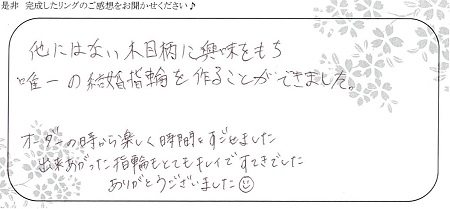 是非 完成したリングのご感想をお聞かせください♪
他にはない木目柄に興味をもち
唯一の結婚指輪を作ることができました。
オーダーの時から楽しく時間をすごせました
出来あがった指輪もとてもキレイですてきでした
ありがとうございました☺